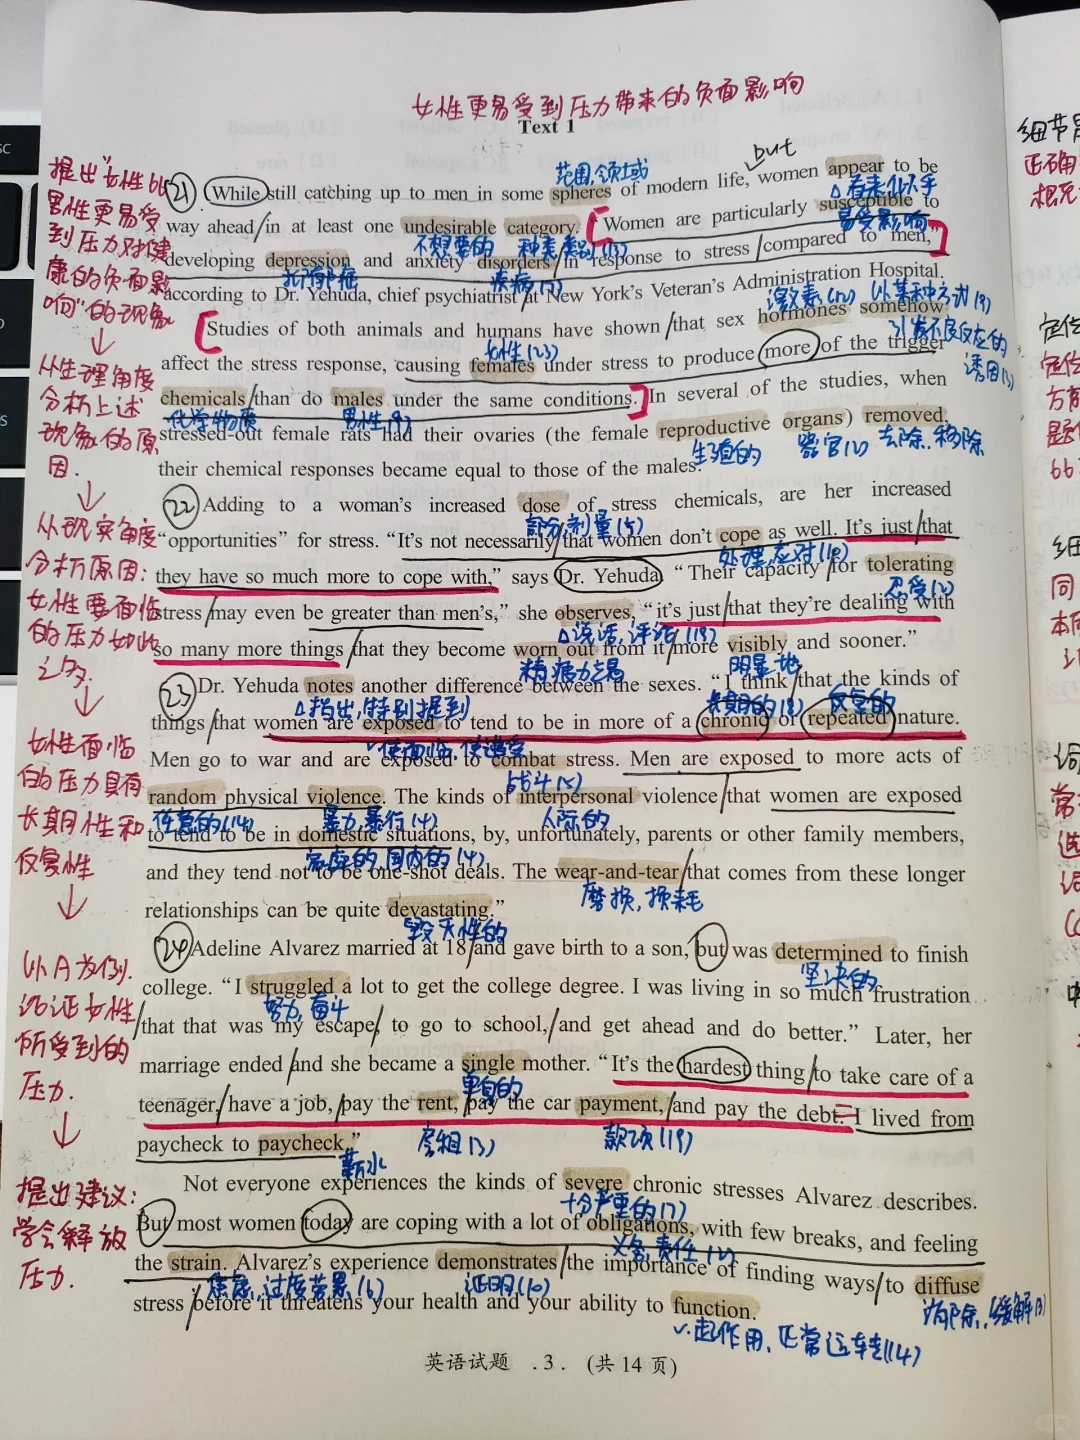 女性更易受到压力带来的负面影响
Text 1
but
范围,领域
21 While still catching up to men in some spheres of modern life, women appear to be
△看来,似乎
way ahead/in at least one undesirable category. [Women are particularly susceptible to
不想要的 种类,类别(13) 易受影响
developing depression and anxiety disorders/in response to stress/compared to men,]
抑郁症 疾病(12)
according to Dr. Yehuda, chief psychiatrist/at New York's Veteran's Administration Hospital.
激素(12) 以某种方式(9)
[Studies of both animals and humans have shown/that sex hormones somehow
女性(23) 引发不良反应的
诱因(1)
affect the stress response, causing females under stress to produce more of the trigger
chemicals/than do males under the same conditions.] In several of the studies, when
化学物质 男性(9)
stressed-out female rats had their ovaries (the female reproductive organs) removed,
生殖的 器官(2) 去除,移除
their chemical responses became equal to those of the males.
22 Adding to a woman's increased dose of stress chemicals, are her increased
部分,剂量(5)
"opportunities" for stress. "It's not necessarily/that women don't cope as well. It's just/that
处理,应对(10)
they have so much more to cope with," says Dr. Yehuda. "Their capacity/for tolerating
忍受(2)
stress/may even be greater than men's," she observes, "it's just/that they're dealing with
△说话,评论(19)
so many more things/that they become worn out from it/more visibly and sooner."
精疲力尽 明显地
23 Dr. Yehuda notes another difference between the sexes. "I think/that the kinds of
△指出,特别提到 长期的(8) 反复的
things/that women are exposed to tend to be in more of a chronic or repeated nature.
使面临,使遭受
Men go to war and are exposed to combat stress. Men are exposed to more acts of
战斗(5)
random physical violence. The kinds of interpersonal violence/that women are exposed
任意的(14) 暴力,暴行(4) 人际的
to tend to be in domestic situations, by, unfortunately, parents or other family members,
家庭的,国内的(4)
and they tend not to be one-shot deals. The wear-and-tear/that comes from these longer
磨损,损耗
relationships can be quite devastating."
毁灭性的
24 Adeline Alvarez married at 18/and gave birth to a son, but was determined to finish
坚决的
college. "I struggled a lot to get the college degree. I was living in so much frustration
努力,奋斗
/that that was my escape,/to go to school,/and get ahead and do better." Later, her
marriage ended/and she became a single mother. "It's the hardest thing/to take care of a
单身的
teenager,/have a job,/pay the rent,/pay the car payment,/and pay the debt. I lived from
房租(3) 款项(19)
paycheck to paycheck."
薪水
Not everyone experiences the kinds of severe chronic stresses Alvarez describes.
十分严重的(7)
But most women today are coping with a lot of obligations, with few breaks, and feeling
义务,责任(2)
the strain. Alvarez's experience demonstrates/the importance of finding ways/to diffuse
焦虑,过度劳累(6) 证明(10) 消除,缓解(3)
stress/before it threatens your health and your ability to function.
v.起作用,正常运转(14)
英语试题 .3. (共14页)
提出"女性比
男性更易受
到压力对健
康的负面影
响"的现象
↓
从生理角度
分析上述
现象的原
因.
↓
从现实角度
分析原因:
女性要面临
的压力如此
之多.
↓
女性面临
的压力具有
长期性和
反复性
↓
以A为例.
论证女性
所受到的
压力.
↓
提出建议:
学会释放
压力.
正确
定位
方